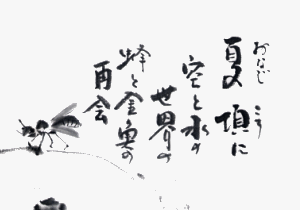 おなじ ころ
夏頃に
空と水の
世界の
蜂と金魚の
再会